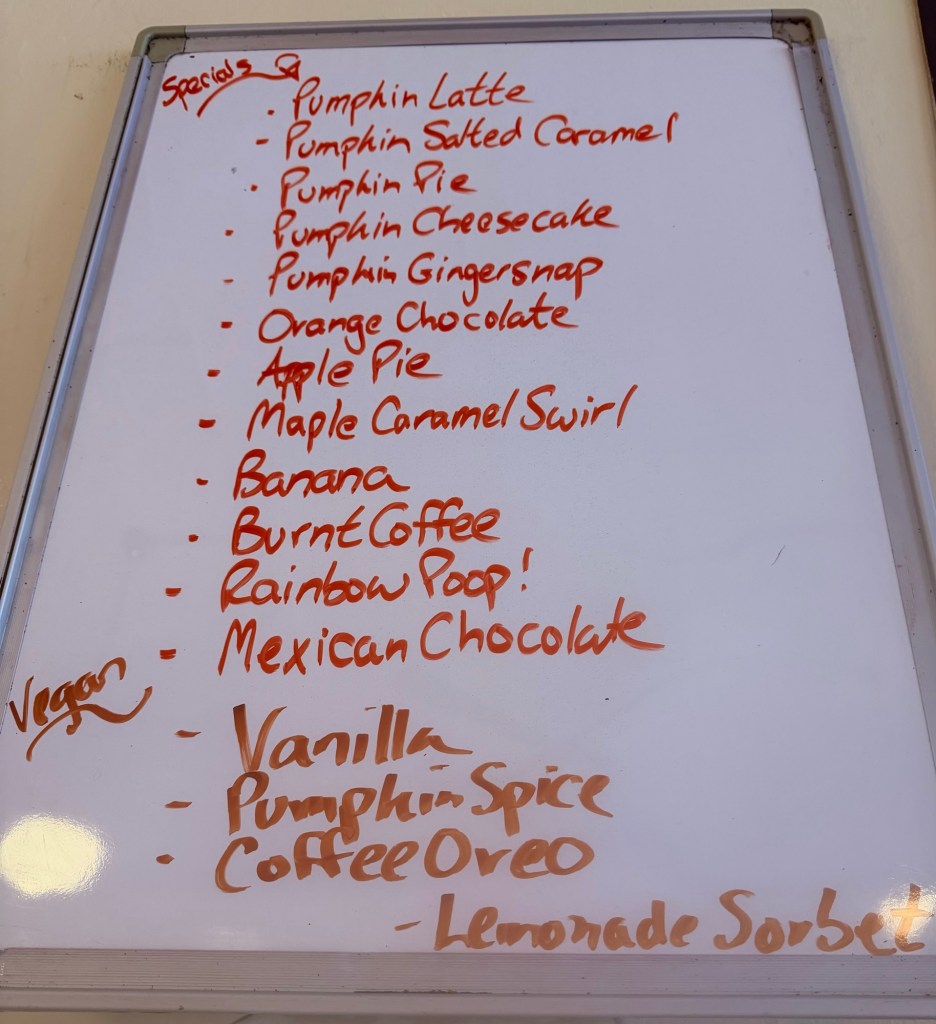 Specials
· Pumpkin Latte
- Pumpkin Salted Caramel
· Pumpkin Pie
· Pumpkin Cheesecake
- Pumpkin Gingersnap
- Orange Chocolate
- Apple Pie
- Maple Caramel Swirl
- Banana
· Burnt Coffee
- Rainbow Poop!
- Mexican Chocolate
Vegan
- Vanilla
- Pumpkin Spice
- Coffee Oreo
- Lemonade Sorbet